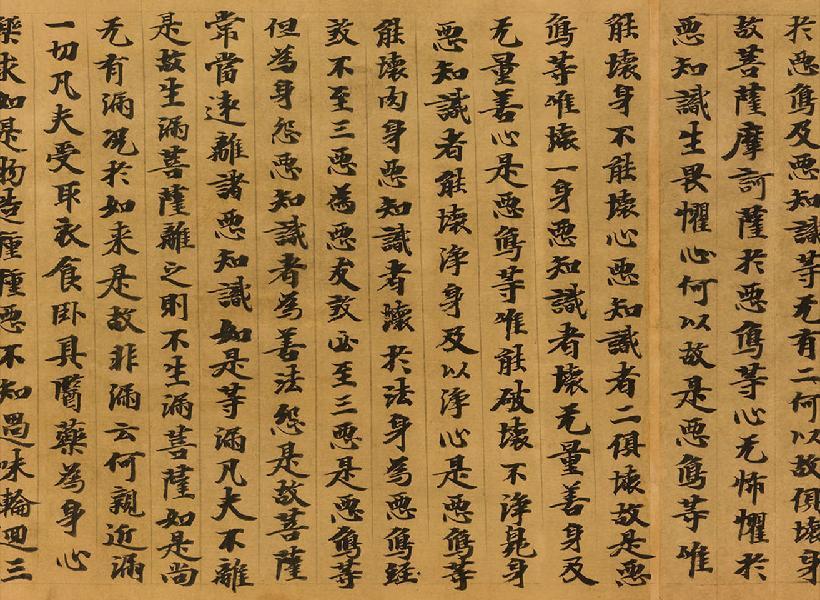 於惡象及惡知識等无有二何以故俱壞身
故菩薩摩訶薩於惡象等心无怖懼於
惡知識生畏懼心何以故是惡象等唯
能壞身不能壞心惡知識者二俱壞故是惡
象等唯壞一身惡知識者壞无量善身及
无量善心是惡象等唯能破壞不淨臰身
惡知識者能壞淨身及以淨心是惡象等
能壞肉身惡知識者壞於法身為惡象
煞不至三惡為惡友煞必至三惡是惡象等
但為身怨惡知識者為善法怨是故菩薩
常當遠離諸惡知識如是等漏凡夫不離
是故生漏菩薩離之則不生漏菩薩如是尚
无有漏況於如来是故非漏云何親近漏
一切凡夫受取衣食卧具醫藥為身心
樂求如是物造種種惡不知過味輪迴三